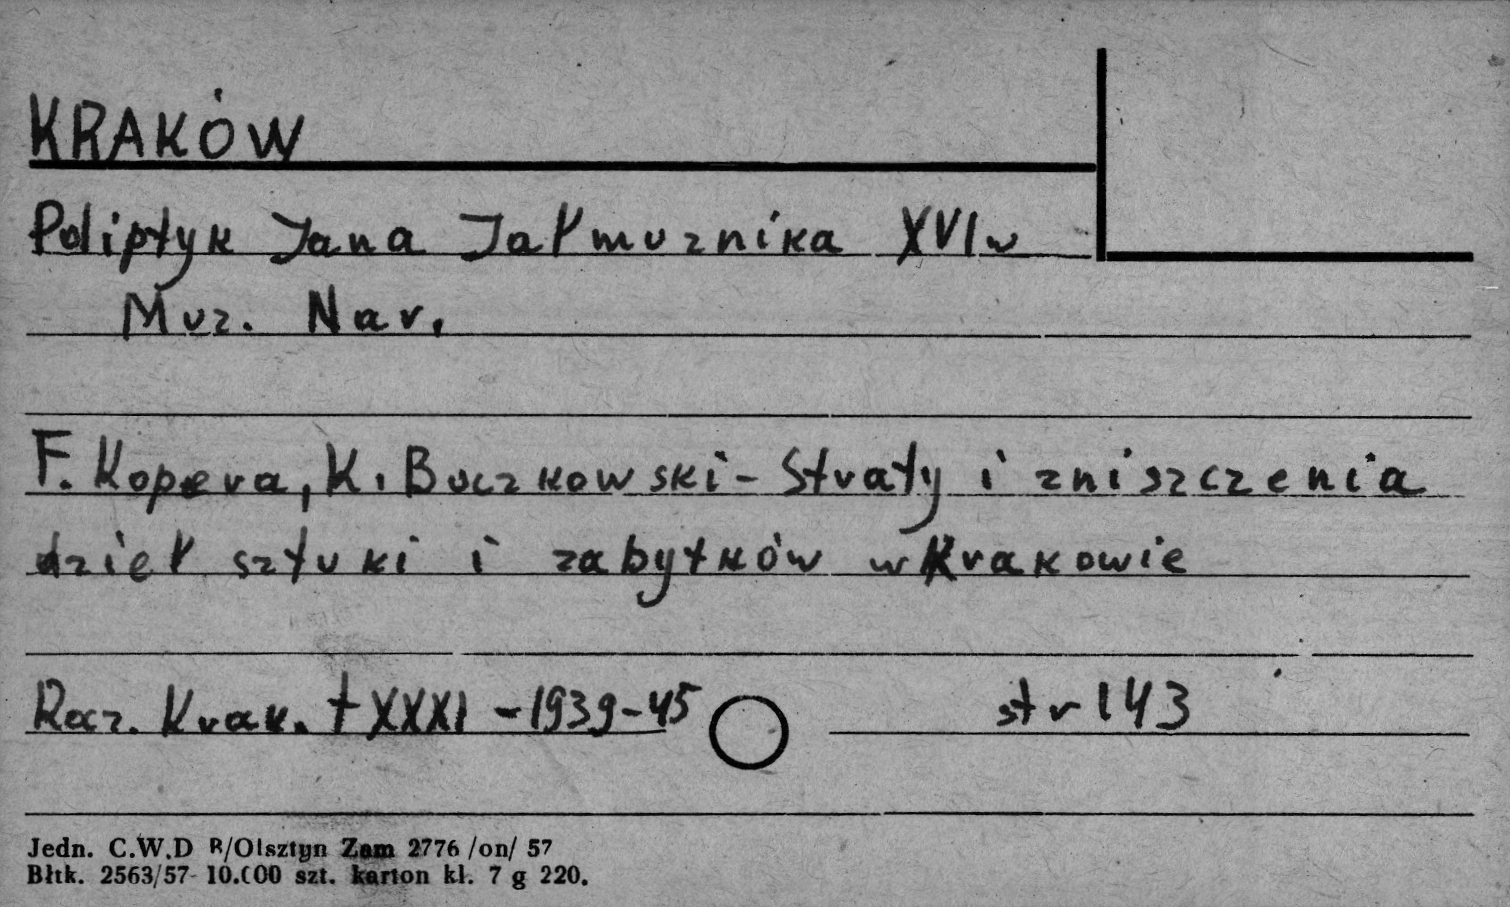 KRAKÓW
Poliptyk Jana Jałmużnika XVIw
Muz. Nar.
F. Kopera, K. Buczkowski - Straty i zniszczenia
dzieł sztuki i zabytków w Krakowie
Rocz. Krak. t XXXI - 1939-45 str 143
Jedn. C.W.D R/Olsztyn Zam 2776 /on/ 57
Błtk. 2563/57- 10.000 szt. karton kl. 7 g 220.